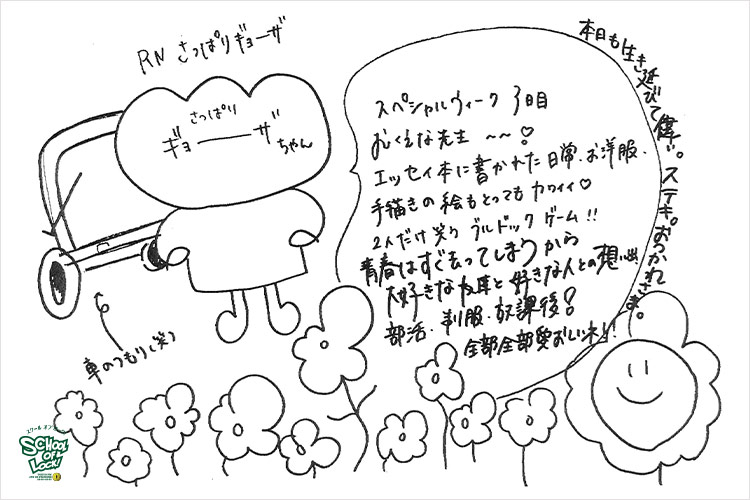 RN さっぱりギョーザ
さっぱり
ギョーザ
ちゃん
車のつもり(笑)
スペシャルウィーク 3日目
おくえな先生 〜〜♡
エッセイ本に書かれた日常、お洋服、
手描きの絵もとってもカワイイ♡
2人だけ(笑)ブルドックゲーム!!
青春はすぐ去ってしまうから
大好きな友達と好きな人との想い出
部活、制服、放課後!
全部全部愛おしいネ!!
本日も生き延びて偉い。ステキ。おつかれさま。
スクール オブ ロック
SCHOOL
OF
LOCK!